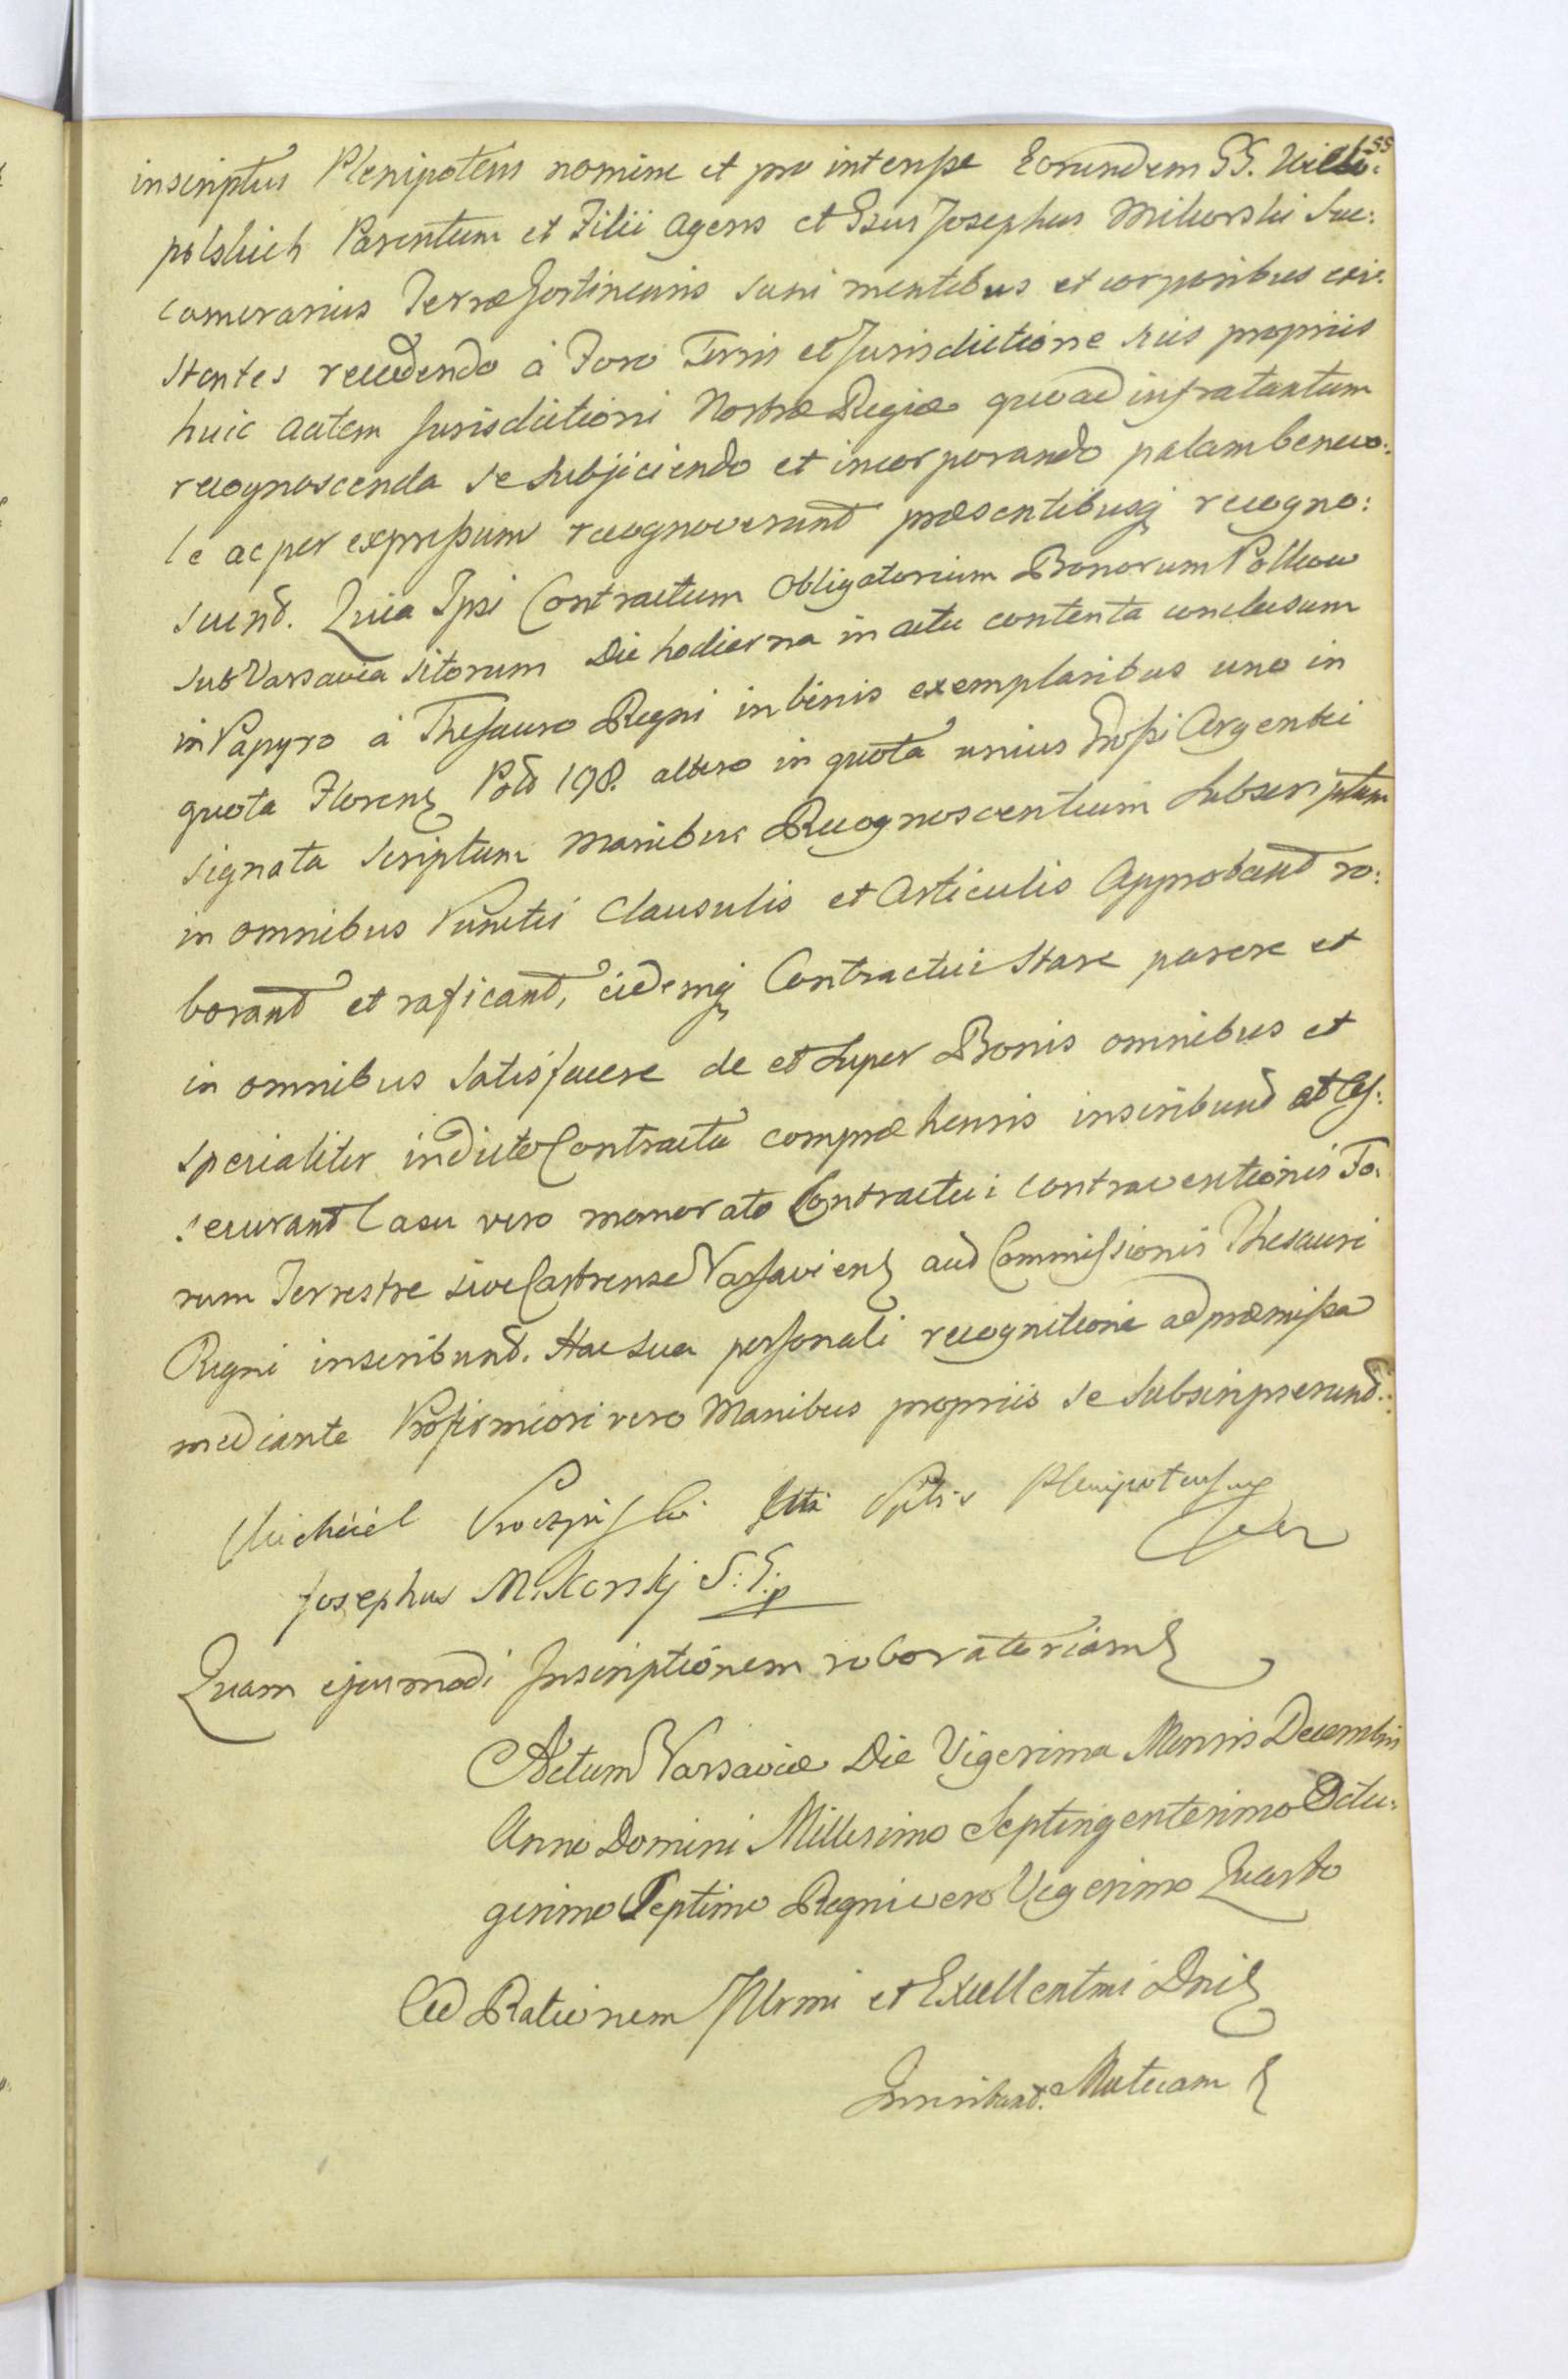 55
inscriptus Plenipotens nomine et pro interesse Eorundem GG. Wielo:
polskich Parentum et Filii agens et Gsus Josephus Mikorski Suc:
camerarius Terræ Gostinensis sani mentibus et corporibus exi:
stentes recedendo à Foro Terris et Jurisdictione suis propriis
huic autem Jurisdictioni Nostræ Regiæ quoad infratantum
recognoscenda se subjiciendo et incorporando palam benevo:
le ac per expressum recognoverunt præsentibusq recogno:
scund. Quia Ipsi Contractum Obligatorium Bonorum Polkow
sub Varsavia sitorum Die hodierna in actu contenta conclusum
in Papyro à Thesauro Regni in binis exemplaribus uno in
quota Floren Pold 198. altero in quota unius Grossi Argentei
signata scriptum Manibus Recognoscentium subscriptum
in omnibus Punctis Clausulis et Articulis Approband ro:
borand et raficand, eidemq Contractui stare parere et
in omnibus satisfacere de et super Bonis omnibus et
specialiter in dicto Contractu comprehensis inscribund et as:
securand Casu vero memorato Contractui contraventionis Fo:
rum Terrestre sive Castrense Varsavien aud Commissionis Thesauri
Regni inscribund. Hac sua personali recognitione ad præmissa
mediante Pro firmiori vero Manibus propriis se subscripserund:
Michael Plenipotens
Josephus Mikorskj S: G: p
Quam ejusmodi Inscriptionem roboratoriam
Actum Varsaviæ Die Vigesima Mensis Decembris
Anno Domini Millesimo Septingentesimo Octu:
gesimo Septimo Regni vero Vigesimo Quarto
Ad Rationem Illrmi et Excellentmi Dni
Inscribund. Metricam